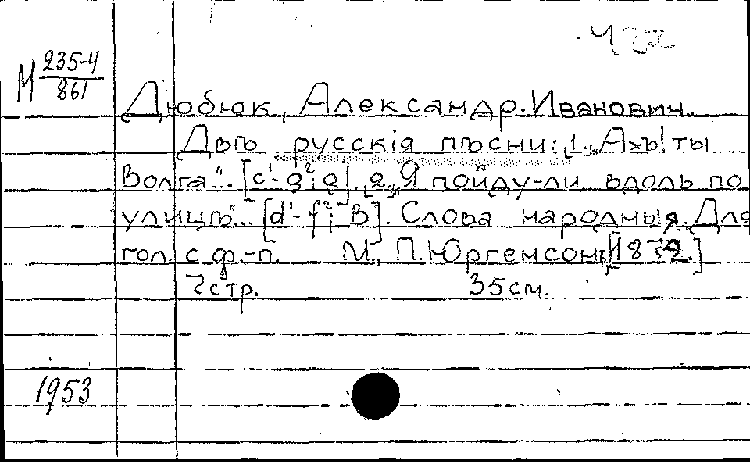 М 235-4
861
Дюбюк, Александр Иванович.
Двѣ русскія пѣсни: 1. „Ахъ! ты
Волга". [c¹-g²; a]. 2. „Я пойду-ли вдоль по
улицѣ". [d¹-f²; B]. Слова народныя. Для
гол. с ф.-п. М., П. Юргенсон, [1872.]
7 стр. 35 см.
1953